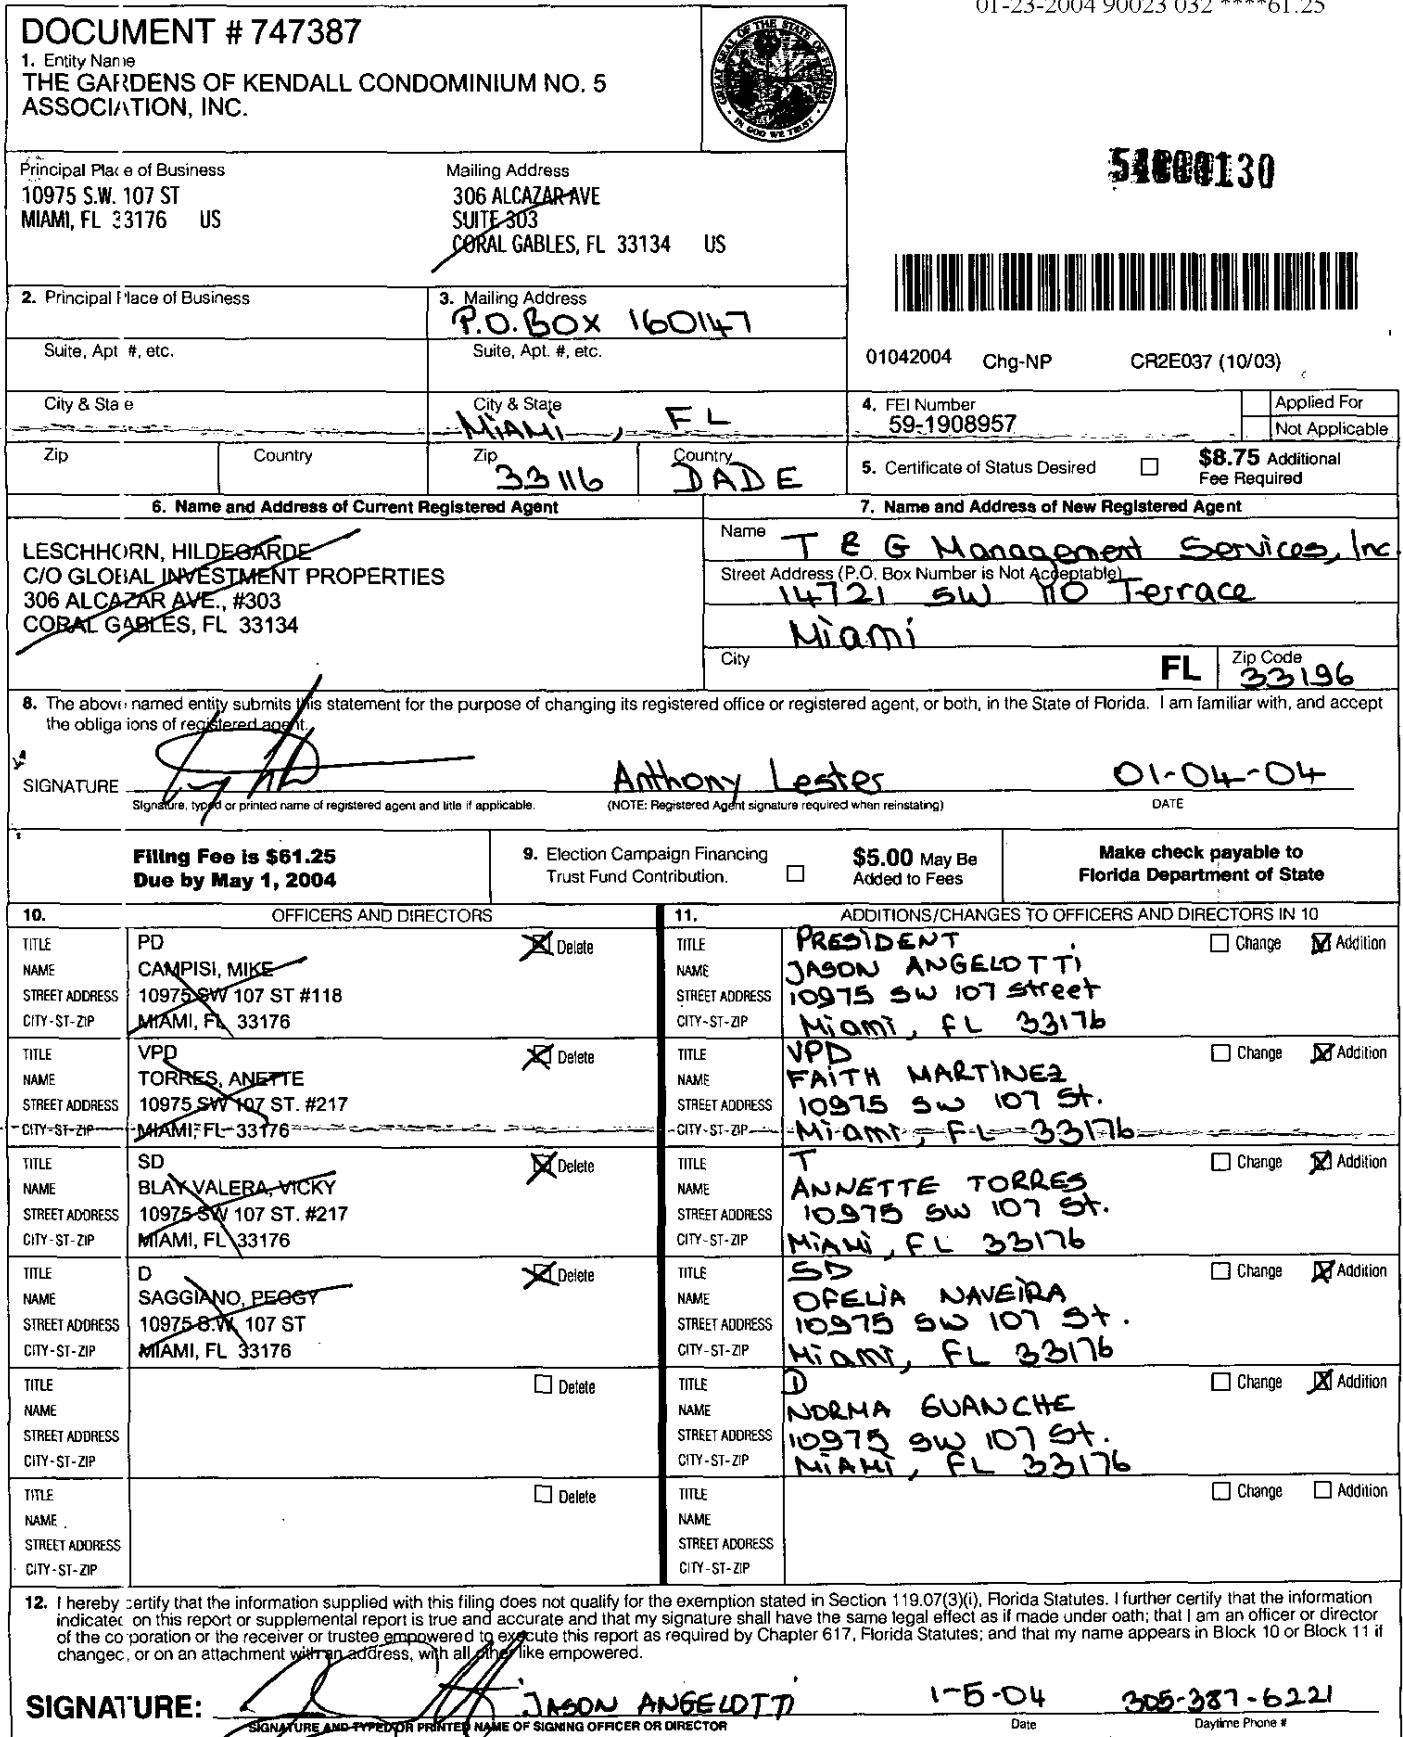 01-23-2004 90023 032 ****61.25
DOCUMENT # 747387
1. Entity Name
THE GARDENS OF KENDALL CONDOMINIUM NO. 5
ASSOCIATION, INC.
GREAT SEAL OF THE STATE OF FLORIDA
IN GOD WE TRUST
Principal Place of Business
10975 S.W. 107 ST
MIAMI, FL 33176 US
Mailing Address
306 ALCAZAR AVE
SUITE 303
CORAL GABLES, FL 33134 US
2. Principal Place of Business
3. Mailing Address
P.O. BOX 160147
Suite, Apt #, etc.
Suite, Apt. #, etc.
01042004 Chg-NP CR2E037 (10/03)
City & State
City & State
MIAMI, FL
4. FEI Number
59-1908957
Applied For
Not Applicable
Zip Country
Zip
33116
Country
DADE
5. Certificate of Status Desired
$8.75 Additional
Fee Required
6. Name and Address of Current Registered Agent
LESCHHORN, HILDEGARDE
C/O GLOBAL INVESTMENT PROPERTIES
306 ALCAZAR AVE., #303
CORAL GABLES, FL 33134
7. Name and Address of New Registered Agent
Name T & G Management Services, Inc
Street Address (P.O. Box Number is Not Acceptable)
14721 SW 110 Terrace
Miami
City FL Zip Code
33196
8. The above named entity submits this statement for the purpose of changing its registered office or registered agent, or both, in the State of Florida. I am familiar with, and accept
the obligations of registered agent.
SIGNATURE Anthony Lester 01-04-04
Signature, typed or printed name of registered agent and title if applicable. (NOTE: Registered Agent signature required when reinstating) DATE
Filing Fee is $61.25
Due by May 1, 2004
9. Election Campaign Financing
Trust Fund Contribution.
$5.00 May Be
Added to Fees
Make check payable to
Florida Department of State
10. OFFICERS AND DIRECTORS
TITLE PD Delete
NAME CAMPISI, MIKE
STREET ADDRESS 10975 SW 107 ST #118
CITY-ST-ZIP MIAMI, FL 33176
TITLE VPD Delete
NAME TORRES, ANETTE
STREET ADDRESS 10975 SW 107 ST. #217
CITY-ST-ZIP MIAMI, FL 33176
TITLE SD Delete
NAME BLAY VALERA, VICKY
STREET ADDRESS 10975 SW 107 ST. #217
CITY-ST-ZIP MIAMI, FL 33176
TITLE D Delete
NAME SAGGIANO, PEGGY
STREET ADDRESS 10975 S.W. 107 ST
CITY-ST-ZIP MIAMI, FL 33176
TITLE Delete
NAME
STREET ADDRESS
CITY-ST-ZIP
TITLE Delete
NAME
STREET ADDRESS
CITY-ST-ZIP
11. ADDITIONS/CHANGES TO OFFICERS AND DIRECTORS IN 10
TITLE PRESIDENT Change Addition
NAME JASON ANGELOTTI
STREET ADDRESS 10975 SW 107 street
CITY-ST-ZIP Miami, FL 33176
TITLE VPD Change Addition
NAME FAITH MARTINEZ
STREET ADDRESS 10975 SW 107 St.
CITY-ST-ZIP Miami, FL 33176
TITLE T Change Addition
NAME ANNETTE TORRES
STREET ADDRESS 10975 SW 107 St.
CITY-ST-ZIP MIAMI, FL 33176
TITLE SD Change Addition
NAME OFELIA NAVEIRA
STREET ADDRESS 10975 SW 107 St.
CITY-ST-ZIP Miami, FL 33176
TITLE D Change Addition
NAME NORMA GUANCHE
STREET ADDRESS 10975 SW 107 St.
CITY-ST-ZIP MIAMI, FL 33176
TITLE Change Addition
NAME
STREET ADDRESS
CITY-ST-ZIP
12. I hereby certify that the information supplied with this filing does not qualify for the exemption stated in Section 119.07(3)(i), Florida Statutes. I further certify that the information
indicated on this report or supplemental report is true and accurate and that my signature shall have the same legal effect as if made under oath; that I am an officer or director
of the corporation or the receiver or trustee empowered to execute this report as required by Chapter 617, Florida Statutes; and that my name appears in Block 10 or Block 11 if
changed, or on an attachment with an address, with all other like empowered.
SIGNATURE: JASON ANGELOTTI 1-5-04 305-387-6221
SIGNATURE AND TYPED OR PRINTED NAME OF SIGNING OFFICER OR DIRECTOR Date Daytime Phone #